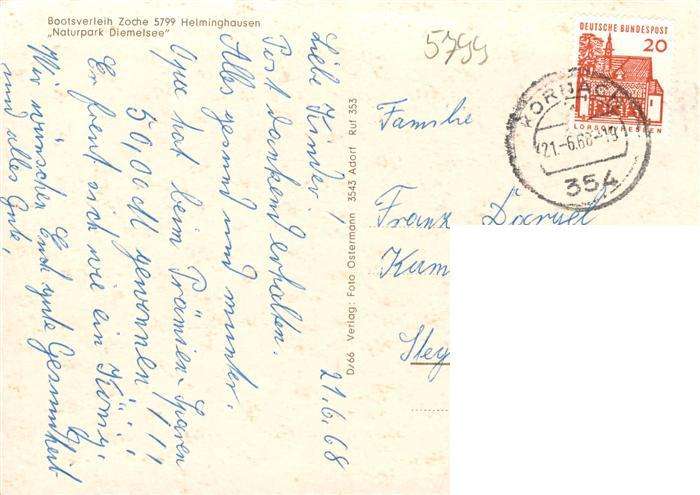 Bootsverleih Zoche 5799 Helminghausen
„Naturpark Diemelsee"
21.6.68
Liebe Kinder!
Post dankend erhalten.
Alles gesund und munter.
Opa hat beim Prämien-Sparen
50,00 M gewonnen!!!
Er freut sich wie ein König.
Wir wünschen Euch gute Gesundheit
und alles Gute,
D₂66 Verlag: Foto Ostermann 3543 Adorf Ruf 353
5799
DEUTSCHE BUNDESPOST
20
LORSCH HESSEN
21.-6.68-19
354
Familie
Franz